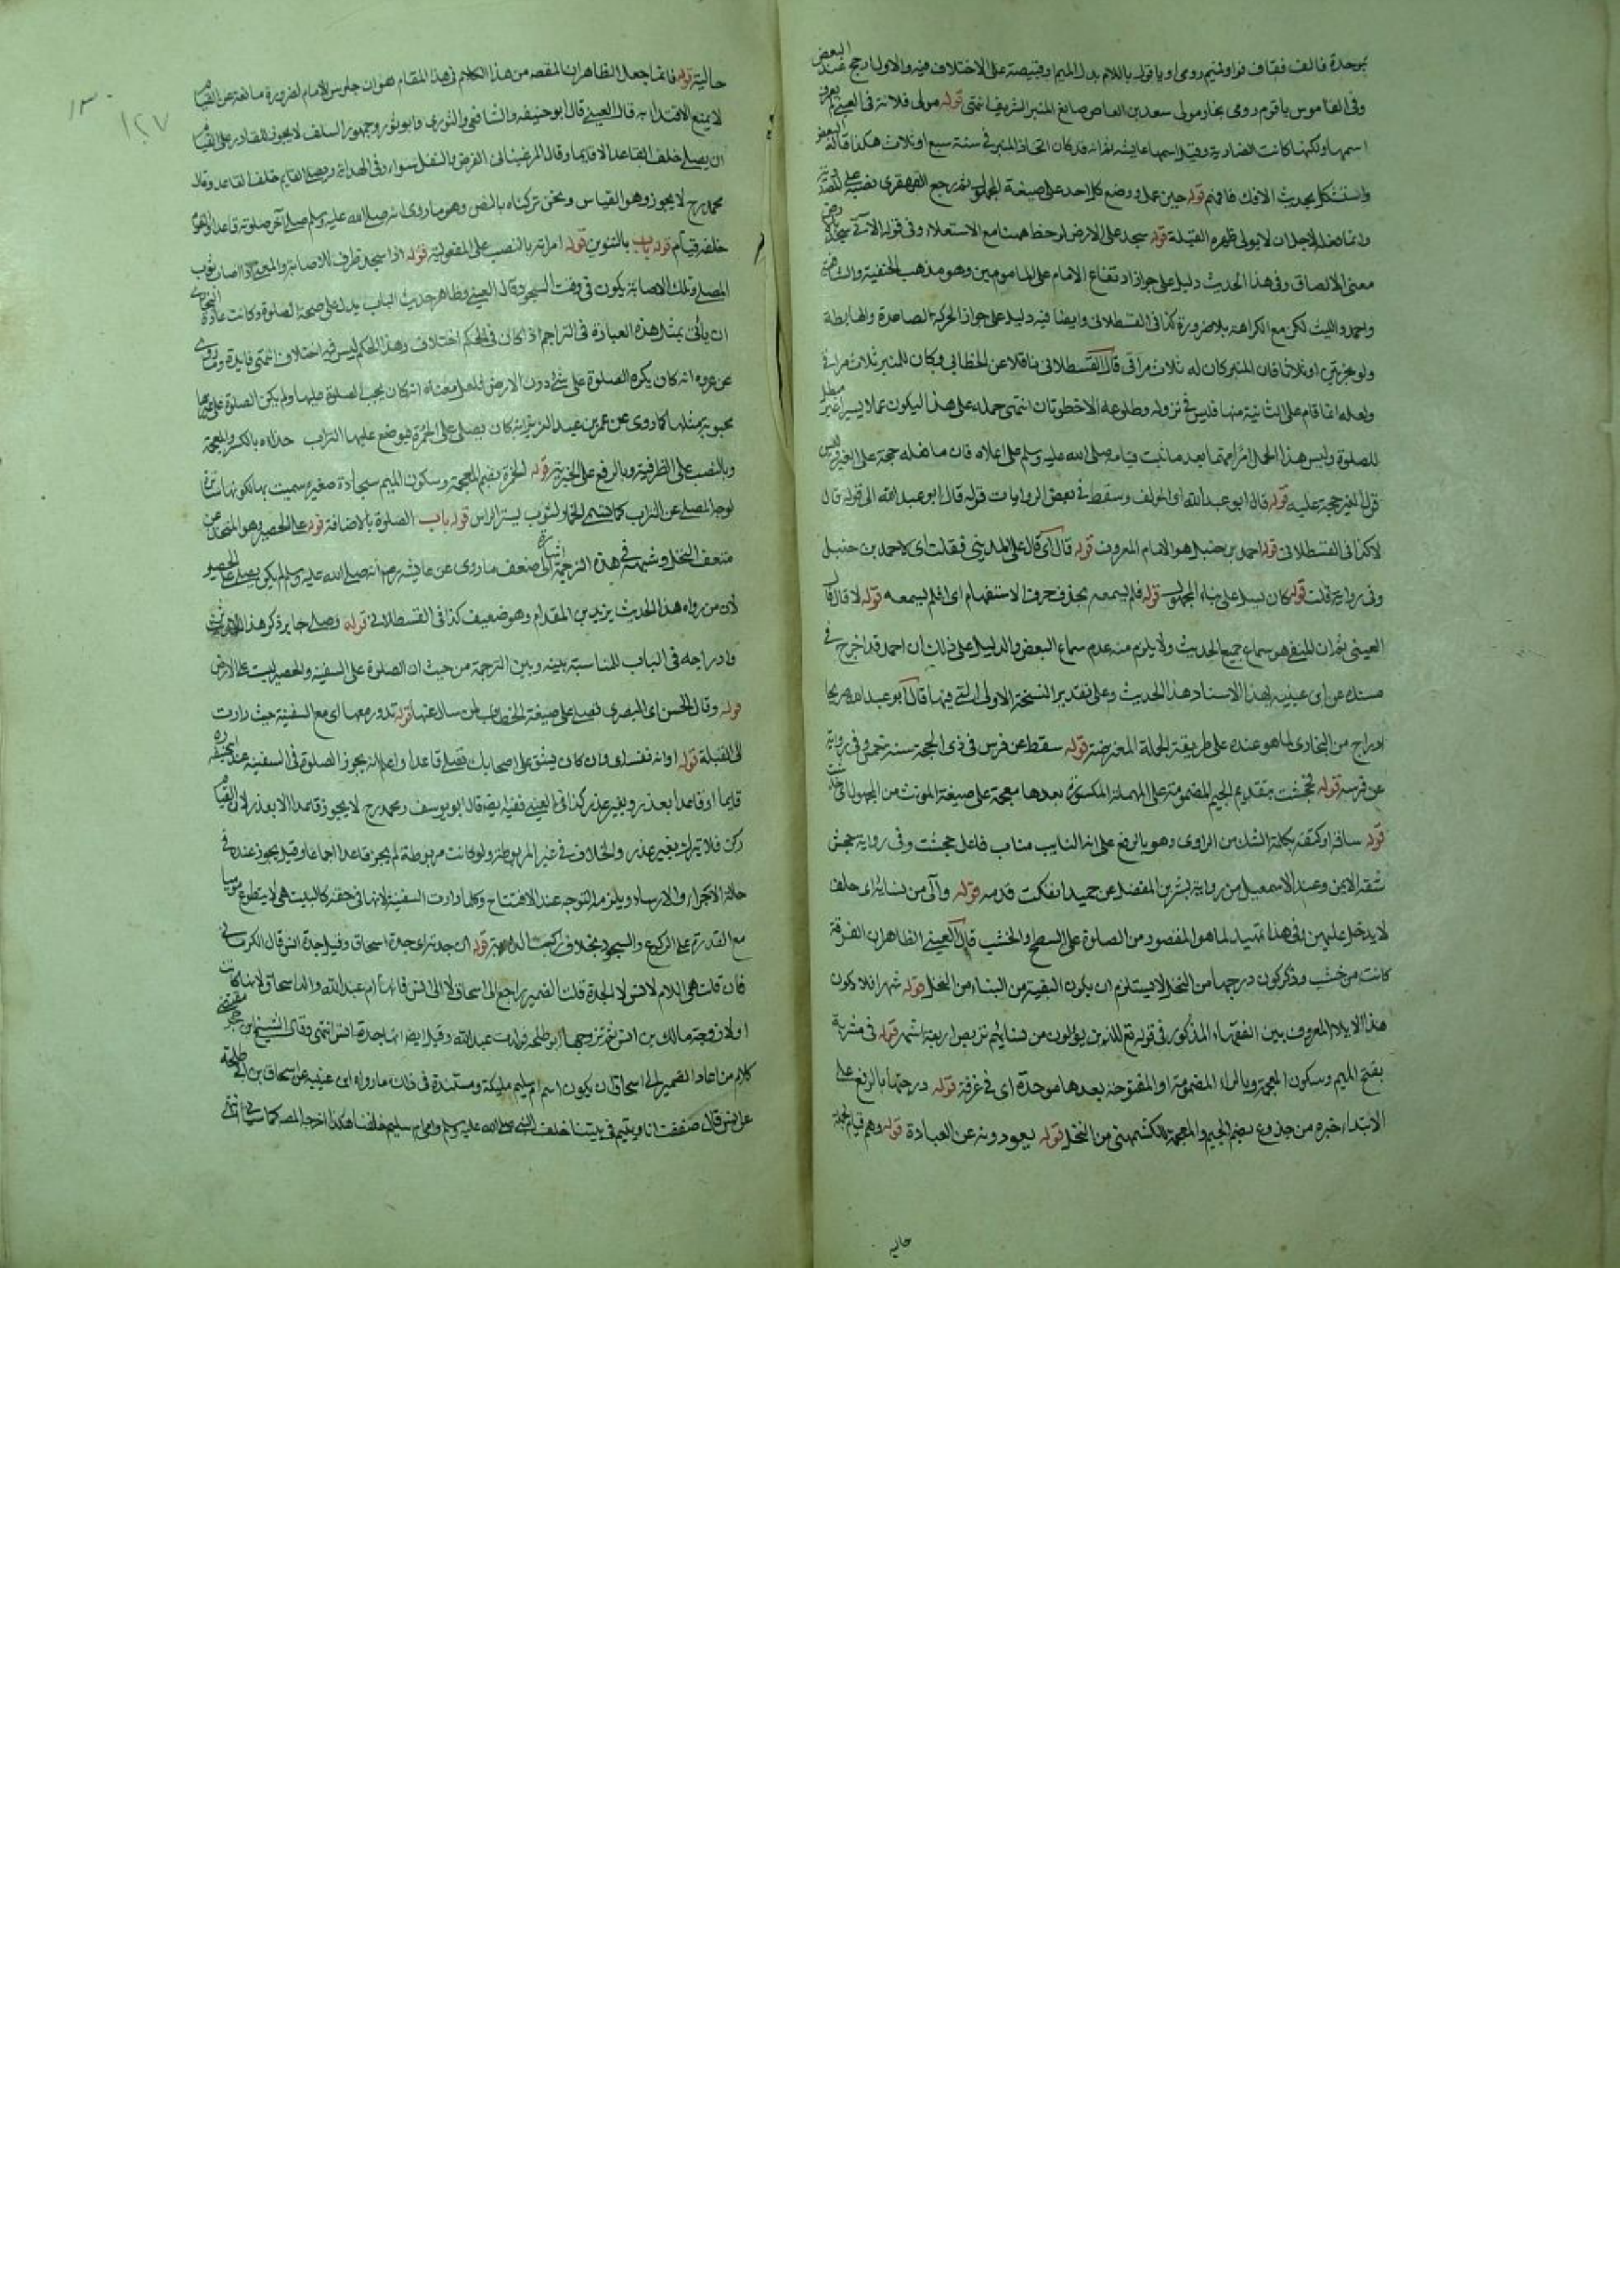 بموحدة فالف فقاف فواو فميم رومى او باقول باللام بدل الميم او قبيصة على الاختلاف فيه والاول ارجح عند البعض
وفى القاموس باقوم رومى نجار مولى سعد بن العاص صانع المنبر الشريف انتهى قوله مولى فلانة فى العينى لم يعرف
اسمها ولكنها كانت انصارية وقيل اسمها عايشة ثم انه قد كان اتخاذ المنبر فى سنة سبع او ثلاث هكذا قاله البعض
واستشكل بحديث الافك فافهم قوله حين عمل ووضع كلاحد على صيغة المجهول ثم رجع القهقرى نصبه على المصدرية
وانما فعل لاجل ان لا يولى ظهره القبلة قوله سجد على الارض لوحظ ههنا مع الاستعلاء وفى قوله الآتى سجد بالارض
معنى الالصاق وفى هذا الحديث دليل على جواز ارتفاع الامام على المامومين وهو مذهب الحنفية والشافعية
واحمد والليث لكن مع الكراهة بلا ضرورة كذا فى القسطلانى وايضا فيه دليل على جواز الحركة الصاعدة والهابطة
ولو بخطوتين او ثلاثا فان المنبر كان له ثلاث مراقى قال القسطلانى ناقلا عن الخطابى وكان للمنبر ثلاث مراقى
ولعله انما قام على الثانية منها فليس فى نزوله وطلوعه الا خطوتان انتهى حمله على هذا ليكون عملا يسيرا غير مبطل
للصلوة وليس هذا الحال امرا مهما بعد ما ثبت قيامه صلى الله عليه وسلم على اعلاه فان ما فعله حجة على الغير وليس
قول الغير حجة عليه قوله قال ابو عبد الله اى المولف وسقط فى بعض الروايات قوله قال ابو عبد الله الى قوله قال
لا كذا فى القسطلانى قوله احمد بن حنبل هو الامام المعروف قوله قال اى قال على المدينى فقلت اى لاحمد بن حنبل
وفى رواية قلت قوله كان يسل على بناء المجهول قوله فلم يسمعه بحذف حرف الاستفهام اى افلم يسمعه قوله لا قال
العينى ثم ان المنفى هو سماع جميع الحديث ولا يلزم منه عدم سماع البعض والدليل على ذلك ان احمد قد اخرج فى
مسنده عن ابن عيينة بهذا الاسناد هذا الحديث وعلى تقدير النسخة الاولى التى فيها قال ابو عبد الله
ادراج من البخارى لما هو عنده على طريقة الجملة المعترضة قوله سقط عن فرس فى ذى الحجة سنة خمس وفى رواية
عن فرسه قوله فجحشت بتقديم الجيم المضمومة على المهملة المكسورة بعدها معجمة على صيغة المونث من المجهول اى خدشت
قوله ساقه او كتفه بكلمة الشك من الراوى وهو بالرفع على انه النايب مناب فاعل جحشت وفى رواية جحش
شقه الايمن وعند الاسمعيل من رواية بشر بن المفضل عن حميد انفكت قدمه قوله وآلى من نسائه اى حلف
لا يدخل عليهن وفى هذا تمهيد لما هو المقصود من الصلوة على السطح والخشب قال العينى الظاهر ان الغرفة
كانت من خشب وذكر كون درجها من النخل لا يستلزم ان يكون البقية من البناء من النخل قوله شهرا فلا يكون
هذا الايلاء المعروف بين الفقهاء المذكور فى قوله تع للذين يؤلون من نسائهم تربص اربعة اشهر قوله فى مشربة
بفتح الميم وسكون المعجمة وبالراء المضمومة او المفتوحة بعدها موحدة اى فى غرفة قوله درجتها بالرفع على
الابتداء خبره من جذوع بضم الجيم والمعجمة للكشميهنى من النخل قوله يعودونه عن العيادة قوله وهم قيام جملة
حالية
١٣٠
١٢٧
حالية قوله فانما جعل الظاهر ان المقصد من هذا الكلام فى هذا المقام هو ان جلوس الامام لضرورة مانعة عن القيام
لا يمنع الاقتداء به قال العينى قال ابو حنيفة والشافعى والثورى وابو ثور وجمهور السلف لا يجوز للقادر على القيام
ان يصلى خلف القاعد الا قايما وقال المرغينانى الفرض والنفل سواء وفى الهداية ويصلى القايم خلف القاعد وقال
محمد رح لا يجوز وهو القياس ونحن تركناه بالنص وهو ما روى انه صلى الله عليه وسلم صلى آخر صلوته قاعدا والقوم
خلفه قيام قوله باب بالتنوين قوله امراته بالنصب على المفعولية قوله اذا سجد ظرف للاصابة والمعنى اذا اصاب ثوب
المصلى وتلك الاصابة يكون فى وقت السجود وقال العينى وظاهر حديث الباب يدل على صحة الصلوة وكانت عادة البخارى
ان يأتى بمثل هذه العبارة فى التراجم اذا كان فى الحكم اختلاف وهذا الحكم ليس فيه اختلاف انتهى فايدة وما روى
عن عروة انه كان يكره الصلوة على شئ دون الارض فلعل معناه انه كان يحب الصلوة عليها ولم يكن الصلوة على غيرها
محبوبة مثلها كما روى عن عمر بن عبد العزيز انه كان يصلى على الخمرة فيوضع عليها التراب حذاءه بالكسر والمعجمة
وبالنصب على الظرفية وبالرفع على الخبرية قوله الخمرة بضم المعجمة وسكون الميم سجادة صغيرة سميت بها لكونها ساترة
لوجه المصلى عن التراب كما يسمى الخمار لثوب يستر الراس قوله باب الصلوة بالاضافة قوله على الحصير وهو المتخذ من
سعف النخل وشبهه فى هذه الترجمة اشارة الى ضعف ما روى عن عايشة رضـ انه صلى الله عليه وسلم لم يكن يصلى على الحصير
لان من رواة هذا الحديث يزيد بن المقدام وهو ضعيف كذا فى القسطلانى قوله وصلى جابر ذكر هذا الحديث
وادراجه فى الباب للمناسبة بينه وبين الترجمة من حيث ان الصلوة على السفينة والحصير ليست على الارض
قوله وقال الحسن اى البصرى تصلى على صيغة الخطاب لمن سال عنها قوله تدور معها اى مع السفينة حيث دارت
الى القبلة قوله اى وان كان يشق على اصحابك فصل قاعدا واعلم انه يجوز الصلوة فى السفينة عند ابى حنيفة ره
قايما او قاعدا بعذر وبغير عذر كذا فى العينى فقال ابو يوسف ومحمد رح لا يجوز قاعدا الا بعذر لان القيام
ركن فلا يترك بغير عذر والخلاف فى غير المربوطة ولو كانت مربوطة لم يجز قاعدا اجماعا وقيل يجوز عنده فى
حالة الاجراء والارساء ويلزمه التوجه عند الافتتاح وكلما دارت السفينة لانها فى حقه كالبيت حتى لا يتطوع موميا
مع القدرة على الركوع والسجود بخلاف راكب الدابة قوله ان جدته اى جدة اسحاق وقيل جدة انس قال الكرمانى
فان قلت هى اللام لانس لا الجدة قلت الضمير راجع الى اسحاق لا الى انس فانها ام عبد الله والد اسحاق لانها كانت
اولا زوجة مالك بن انس ثم تزوجها ابو طلحة فولدت عبد الله وقيل ايضا انها جدة انس انتهى وقال الشيخ ابن حجر مقتضى
كلام من اعاد الضمير الى اسحاق ان يكون اسم ام سليم مليكة ومستنده فى ذلك ما رواه ابن عيينة عن اسحاق بن ابى طلحة
عن انس قال صففت انا ويتيم فى بيتنا خلف النبى صلى الله عليه وسلم وامى ام سليم خلفنا هكذا اخرجه المصـ كما سياتى انتهى